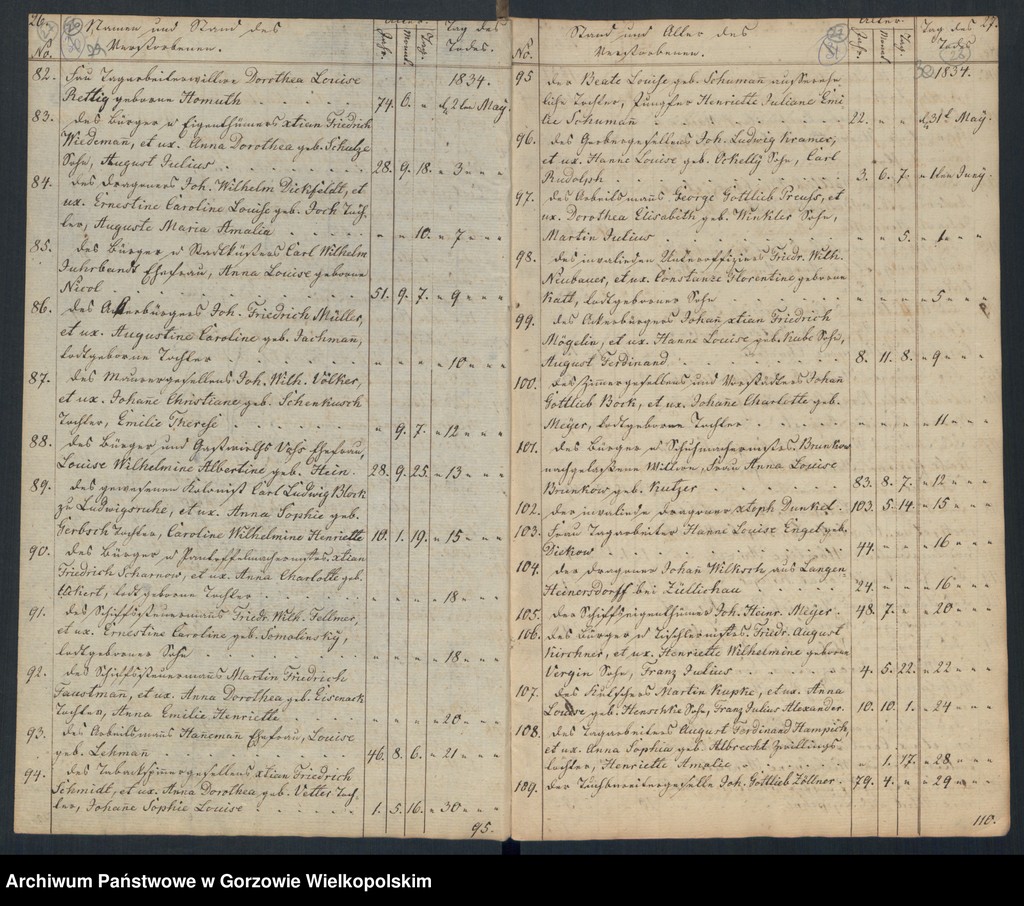 26.
Namen und Stand des
Verstorbenen.
No.
Alter.
Jahr. Monat Tag.
Tag des
Todes.
1834.
82. Frau Tagarbeiterwittwe Dorothea Louise
Rettig geborne Homuth 74. 6. " d. 2ten May.
83. des Bürger u Eigenthümers xtian Friedrich
Wiedeman, et ux. Anna Dorothea geb. Schulze
Sohn, August Julius 28. 9. 18. " 3 " " "
84. des Dragoners Joh. Wilhelm Dickfeldt, et
ux. Ernestine Caroline Louise geb. Jock Toch-
ter, Auguste Maria Amalia " " 10. " 7 " " "
85. des Bürger u Stadtküsters Carl Wilhelm
Fuhrbandt Ehefrau, Anna Louise geborne
Nicol 51. 9. 7. " 9 " " "
86. des Ackerbürgers Joh. Friedrich Müller,
et ux. Augustine Caroline geb. Jachman,
todtgeborne Tochter " " " " 10 " " "
87. des Mauergesellens Joh. Wilh. Völker,
et ux. Johane Christiane geb. Schenkusch
Tochter, Emilie Therese " 9. 7. " 12 " " "
88. des Bürger und Gastwirths Voss Ehefrau,
Louise Wilhelmine Albertine geb. Hein 28. 9. 25. " 13 " " "
89. des gewesenen Kolonist Carl Ludwig Block
zu Ludwigsruhe, et ux. Anna Sophie geb.
Gerbsch Tochter, Caroline Wilhelmine Henriette 10. 1. 19. " 15 " " "
90. des Bürger u Pantoffelmachermstrs. xtian
Friedrich Scharnow, et ux. Anna Charlotte geb.
Eckert, todtgeborne Tochter " " " " 18 " " "
91. des Schiffssteuermanns Friedr. Wilh. Fellmer,
et ux. Ernestine Caroline geb. Somolinsky,
todtgeborner Sohn " " " " 18 " " "
92. des Schiffssteuermanns Martin Friedrich
Faustman, et ux. Anna Dorothea geb. Eisenack
Tochter, Anna Emilie Henriette " " " " 20 " " "
93. des Arbeitsmanns Haneman Ehefrau, Louise
geb. Lehman 46. 8. 6. " 21 " " "
94. des Taback gesellens xtian Friedrich
Schmidt, et ux. Anna Dorothea geb. Vetter Toch-
ter, Johane Sophie Louise 1. 5. 16. " 30 " " "
95.
27.
No.
Stand und Alter des
Verstorbenen.
Alter.
Jahr. Monat Tag.
Tag des
Todes
1834.
95 der Beate Louise geb. Schuman aussereh-
liche Tochter, Jungfer Henriette Juliane Emi-
lie Schuman 22. " " d. 31t. May.
96. des Gerbergesellens Joh. Ludwig Kramer,
et ux. Hanne Louise geb. Sohn, Carl
Rudolph 3. 6. 7. " 1ten Juny.
97. des Arbeitsmanns George Gottlieb Preuss, et
ux. Dorothea Elisabeth geb. Winkler Sohn,
Martin Julius " " 5. " 1 " "
98. des invaliden Unteroffiziers Friedr. Wilh.
Neubauer, et ux. Constanze Florentine geborne
Katt, todtgeborner Sohn " " " " 5 " " "
99. des Ackerbürgers Johan xtian Friedrich
Mögelin, et ux. Hanne Louise geb. Kube Sohn,
August Ferdinand 8. 11. 8. " 9 " " "
100. des Zimmergesellens und Vorstädters Johan
Gottlieb Böck, et ux. Johane Charlotte geb.
Meyer, todtgeborne Tochter " " " " 11 " " "
101. des Bürger u Schuhmachermstrs. Brunkow
nachgelassene Wittwe, Frau Anna Louise
Brunkow geb. Kutzer 83. 8. 7. " 12 " " "
102. der invalide Dragoner xtoph Dunkel 103. 5. 14. " 15 " " "
103. Frau Tagarbeiter Hanne Louise Engel geb.
Dickow 44. " " " 16 " " "
104. der Dragoner Johan Wilksch aus Langen-
Heinersdorff bei Züllichau 24. " " " 16 " " "
105. der Schiffseigenthümer Joh. Heinr. Meyer 48. 7. " " 20 " " "
106. des Bürger u Tischlermstrs. Friedr. August
Kirchner, et ux. Henriette Wilhelmine geborne
Vergin Sohn, Franz Julius 4. 5. 22. " 22 " " "
107. des Kutschers Martin Kupke, et ux. Anna
Louise geb. Henschke Sohn, Franz Julius Alexander 10. 10. 1. " 24 " " "
108. des Tagarbeiters August Ferdinand Hampich,
et ux. Anna Sophia geb. Albrecht Zwillings-
tochter, Henriette Amalie " 1. 17. " 28 " " "
109. der Tuchbereitergeselle Joh. Gottlieb Zöllner 79. 4. " " 29 " " "
110.
Archiwum Państwowe w Gorzowie Wielkopolskim